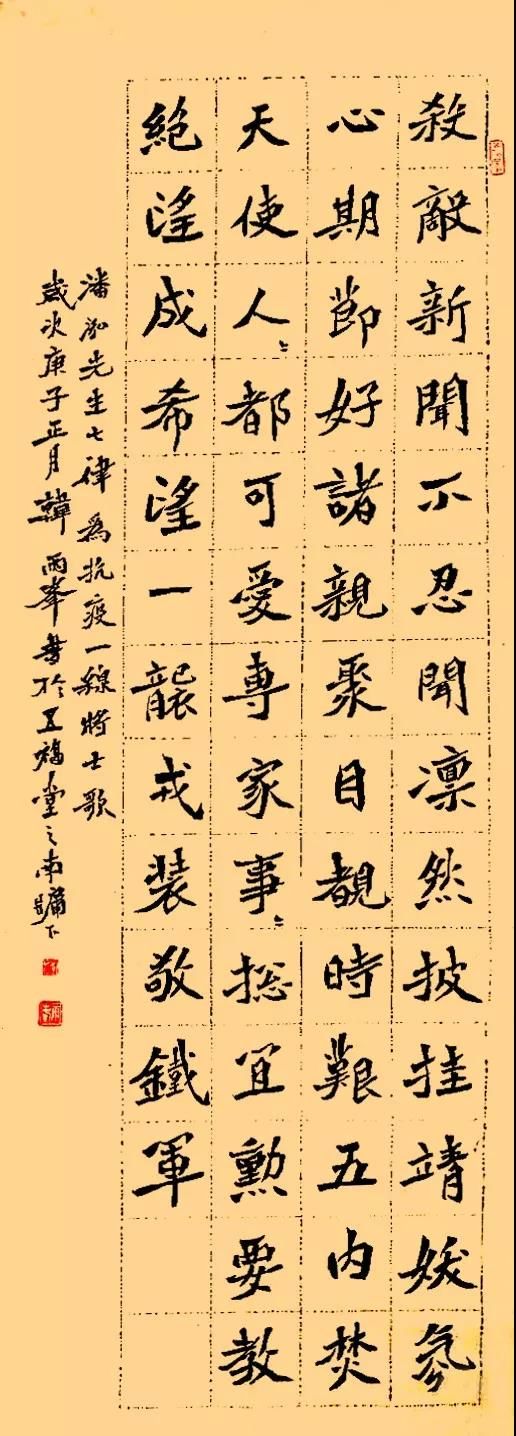 殺敵新聞不忍聞凛然披挂靖妖氛
心期節好諸親聚目覩時艱五内焚
天使人々都可愛專家事々捴宜勳要教
絶望成希望一襲戎裝敬鐵軍
潘泓先生七律為抗疫一線將士歌
歲次庚子正月韓雨峯書於五福堂之南牖下